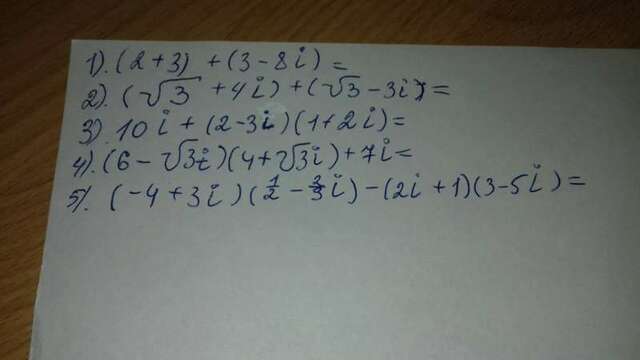 1). (2+3) + (3-8i) =
2). (√3 + 4i) + (√3 - 3i) =
3). 10i + (2-3i)(1+2i) =
4). (6 - √3i)(4+√3i) + 7i =
5). (-4+3i)(1/2 - 2/3i) - (2i+1)(3-5i) =